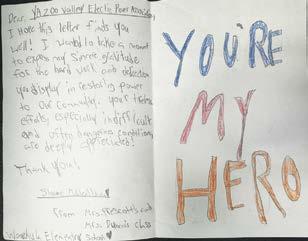 Dear, YAZOO Valley Electric Power Association
I hope this letter finds you
well! I wanted to take a moment
to express my sincere gratitude
for the hard work and dedication
you display in restoring power
to our community. Your tireless
efforts, especially in difficult
and often dangerous conditions,
are deeply appreciated!
Thank you!
From Mrs. Prescott's and
Mrs. class
Elementary School
YOU'RE
MY
HERO